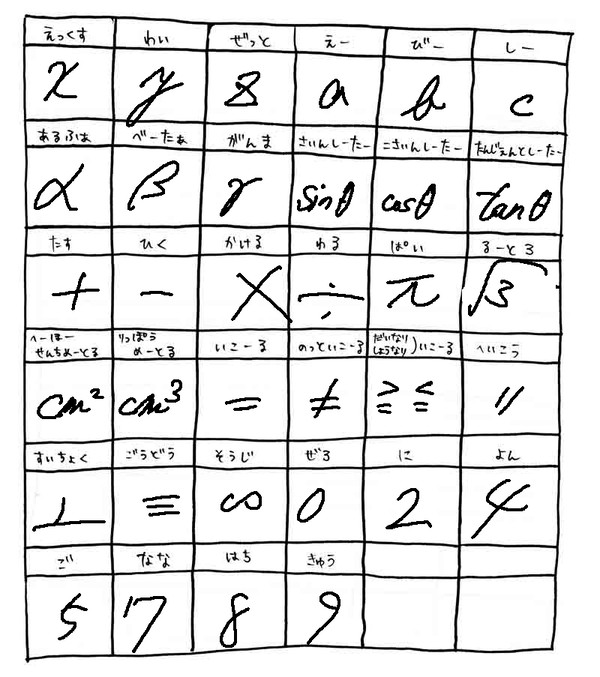 えっくす わい ぜっと えー びー しー
x y z a b c
あるふぁ べーたぁ がんま さいんしーたー こさいんしーたー たんじぇんとしーたー
α β γ sinθ cosθ tanθ
たす ひく かける わる ぱい るーと3
+ − × ÷ π √3
へーほー りっぽう いこーる のっといこーる だいなり しょうなり)いこーる へいこう
せんちめーとる めーとる
cm² cm³ = ≠ ≧ ≦ //
すいちょく ごうどう そうじ ぜろ に よん
⊥ ≡ ∽ 0 2 4
ご なな はち きゅう
5 7 8 9